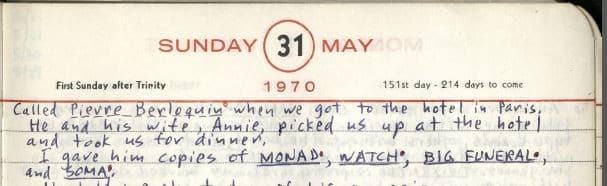 SUNDAY 31 MAY
First Sunday after Trinity 1970 151st day - 214 days to come
Called Pierre Berloquin when we got to the hotel in Paris.
He and his wife, Annie, picked us up at the hotel
and took us for dinner.
I gave him copies of MONAD, WATCH, BIG FUNERAL,
and SOMA.